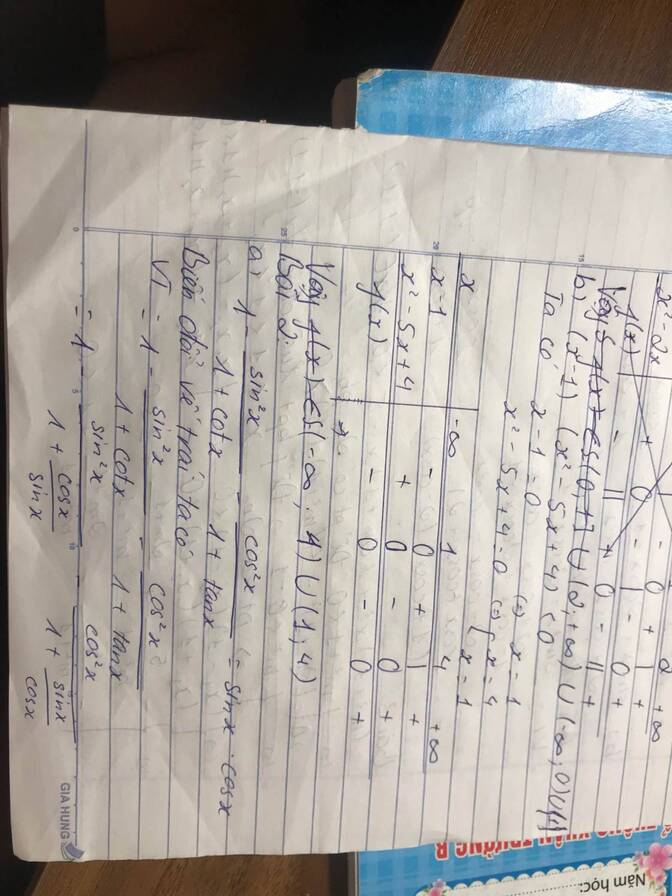 x² - 2x | - 0 - 0 2 + ∞
f(x) + 0 - | + | +
Vậy S f(x) ∈ S(0,1] ∪ (2,+∞) ∪ (-∞;0)
b) (x-1) (x² - 5x + 4) < 0
Ta có x - 1 = 0 (=) x = 1
x² - 5x + 4 = 0 (=) { x = 4
x = 1
x -∞ 1 4 +∞
x - 1 - 0 + | +
x² - 5x + 4 + 0 - 0 +
f(x) - 0 - 0 +
Vậy f(x) ∈ S(-∞; 1) ∪ (1; 4)
Bài 2:
a) 1 - sin²x / (1 + cotx) - cos²x / (1 + tanx) = sinx . cosx
Biến đổi vế trái ta có
VT = 1 - sin²x / (1 + cotx) - cos²x / (1 + tanx)
= 1 - sin²x / (1 + cosx/sinx) - cos²x / (1 + sinx/cosx)
GIA HUNG
XUÂN TRƯỜNG B
Năm học:
15
20
25
0
5
10